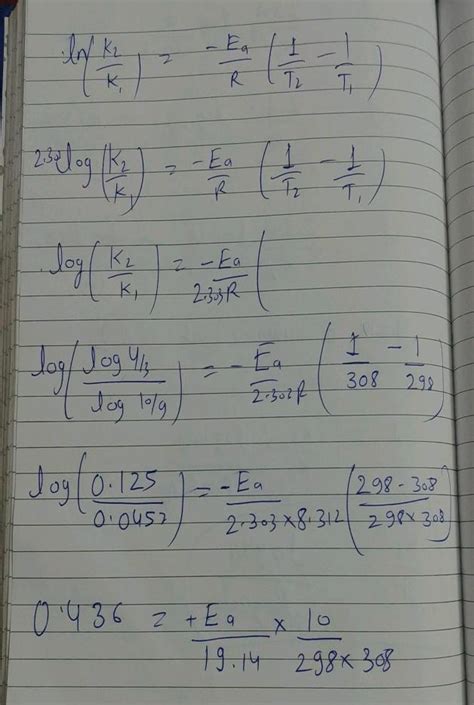 ln(K2/K1) = -Ea/R (1/T2 - 1/T1)
2.303 log(K2/K1) = -Ea/R (1/T2 - 1/T1)
log(K2/K1) = -Ea/2.303R (
log(log 4/3 / log 10/9) = -Ea/2.303R (1/308 - 1/298)
log(0.125/0.0457) = -Ea/2.303×8.312 (298-308/298×308)
0.436 = +Ea/19.14 × 10/298×308